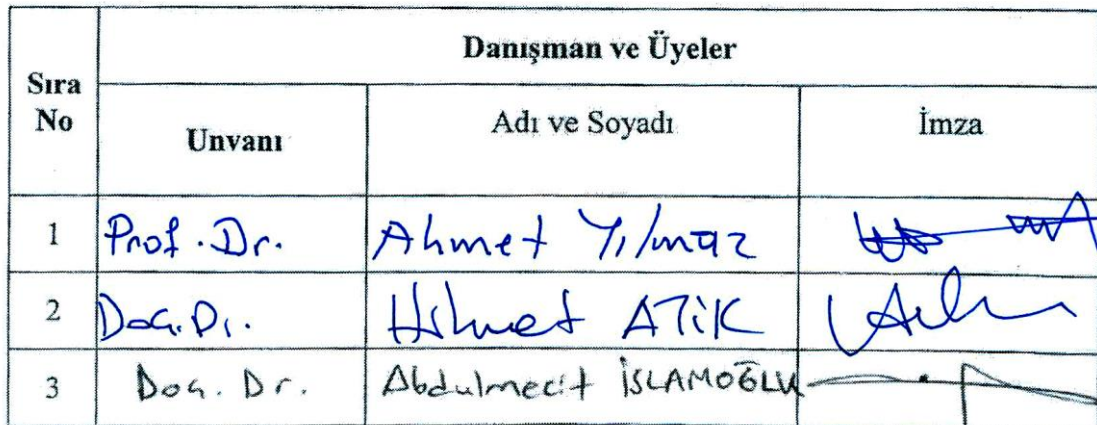 Danışman ve Üyeler
Sıra No
Unvanı Adı ve Soyadı İmza
1 Prof. Dr. Ahmet Yılmaz
2 Doç. Dr. Hikmet ATİK
3 Doç. Dr. Abdulmecit İSLAMOĞLU